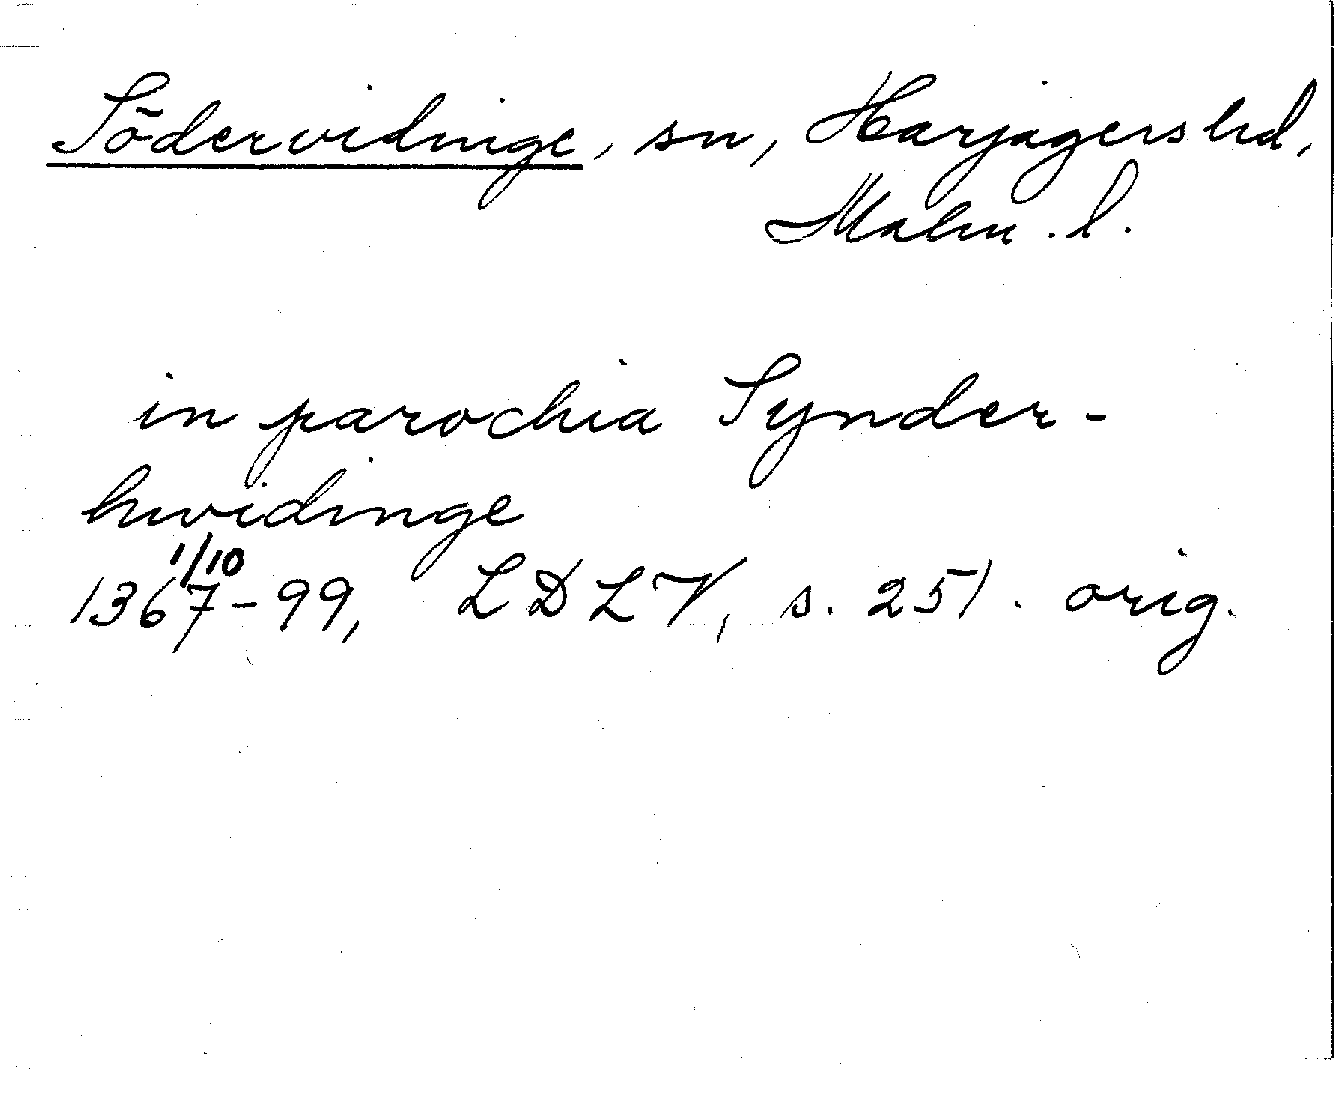 Södervidinge, sn, Harjagers hd,
Malm. l.
in parochia Synder-
hwidinge
1/10
1367-99, LDLV, s. 251. orig.